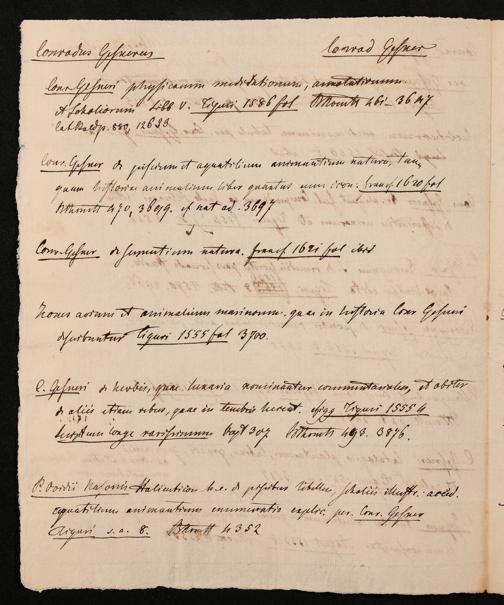 Conradus Gesnerus Conrad Gesner
Conr. Gesneri physicarum meditationum, annotationum
et Scholiorum Libb V. Tiguri 1586 fol 3647
12633
Conr. Gesner de piscium et aquatilium animantium natura, tan
quam historiae animalium liber quartus cum icon. francf 1620 fol
470, 3609. et nat ad. 3697
Conr. Gesner de serpentium natura. francf 1621 fol ibid
Icones avium et animalium marinorum quae in historia Conr Gesneri
describuntur Tiguri 1555 fol 3700.
C. Gesneri de herbis, quae lunaria nominantur commentariolus, et obiter
de aliis etiam rebus, quae in tenebris lucent. Tiguri 1555 4
scriptum longe rarissimum Vogt 307 498. 3876.
P. Ovidii Nasonis Halieuticon h.e. de piscibus libellus, scholiis illustr. acced.
aquatilium animantium enumeratio explic. per Conr. Gesner
Tiguri s.a. 8. 4352